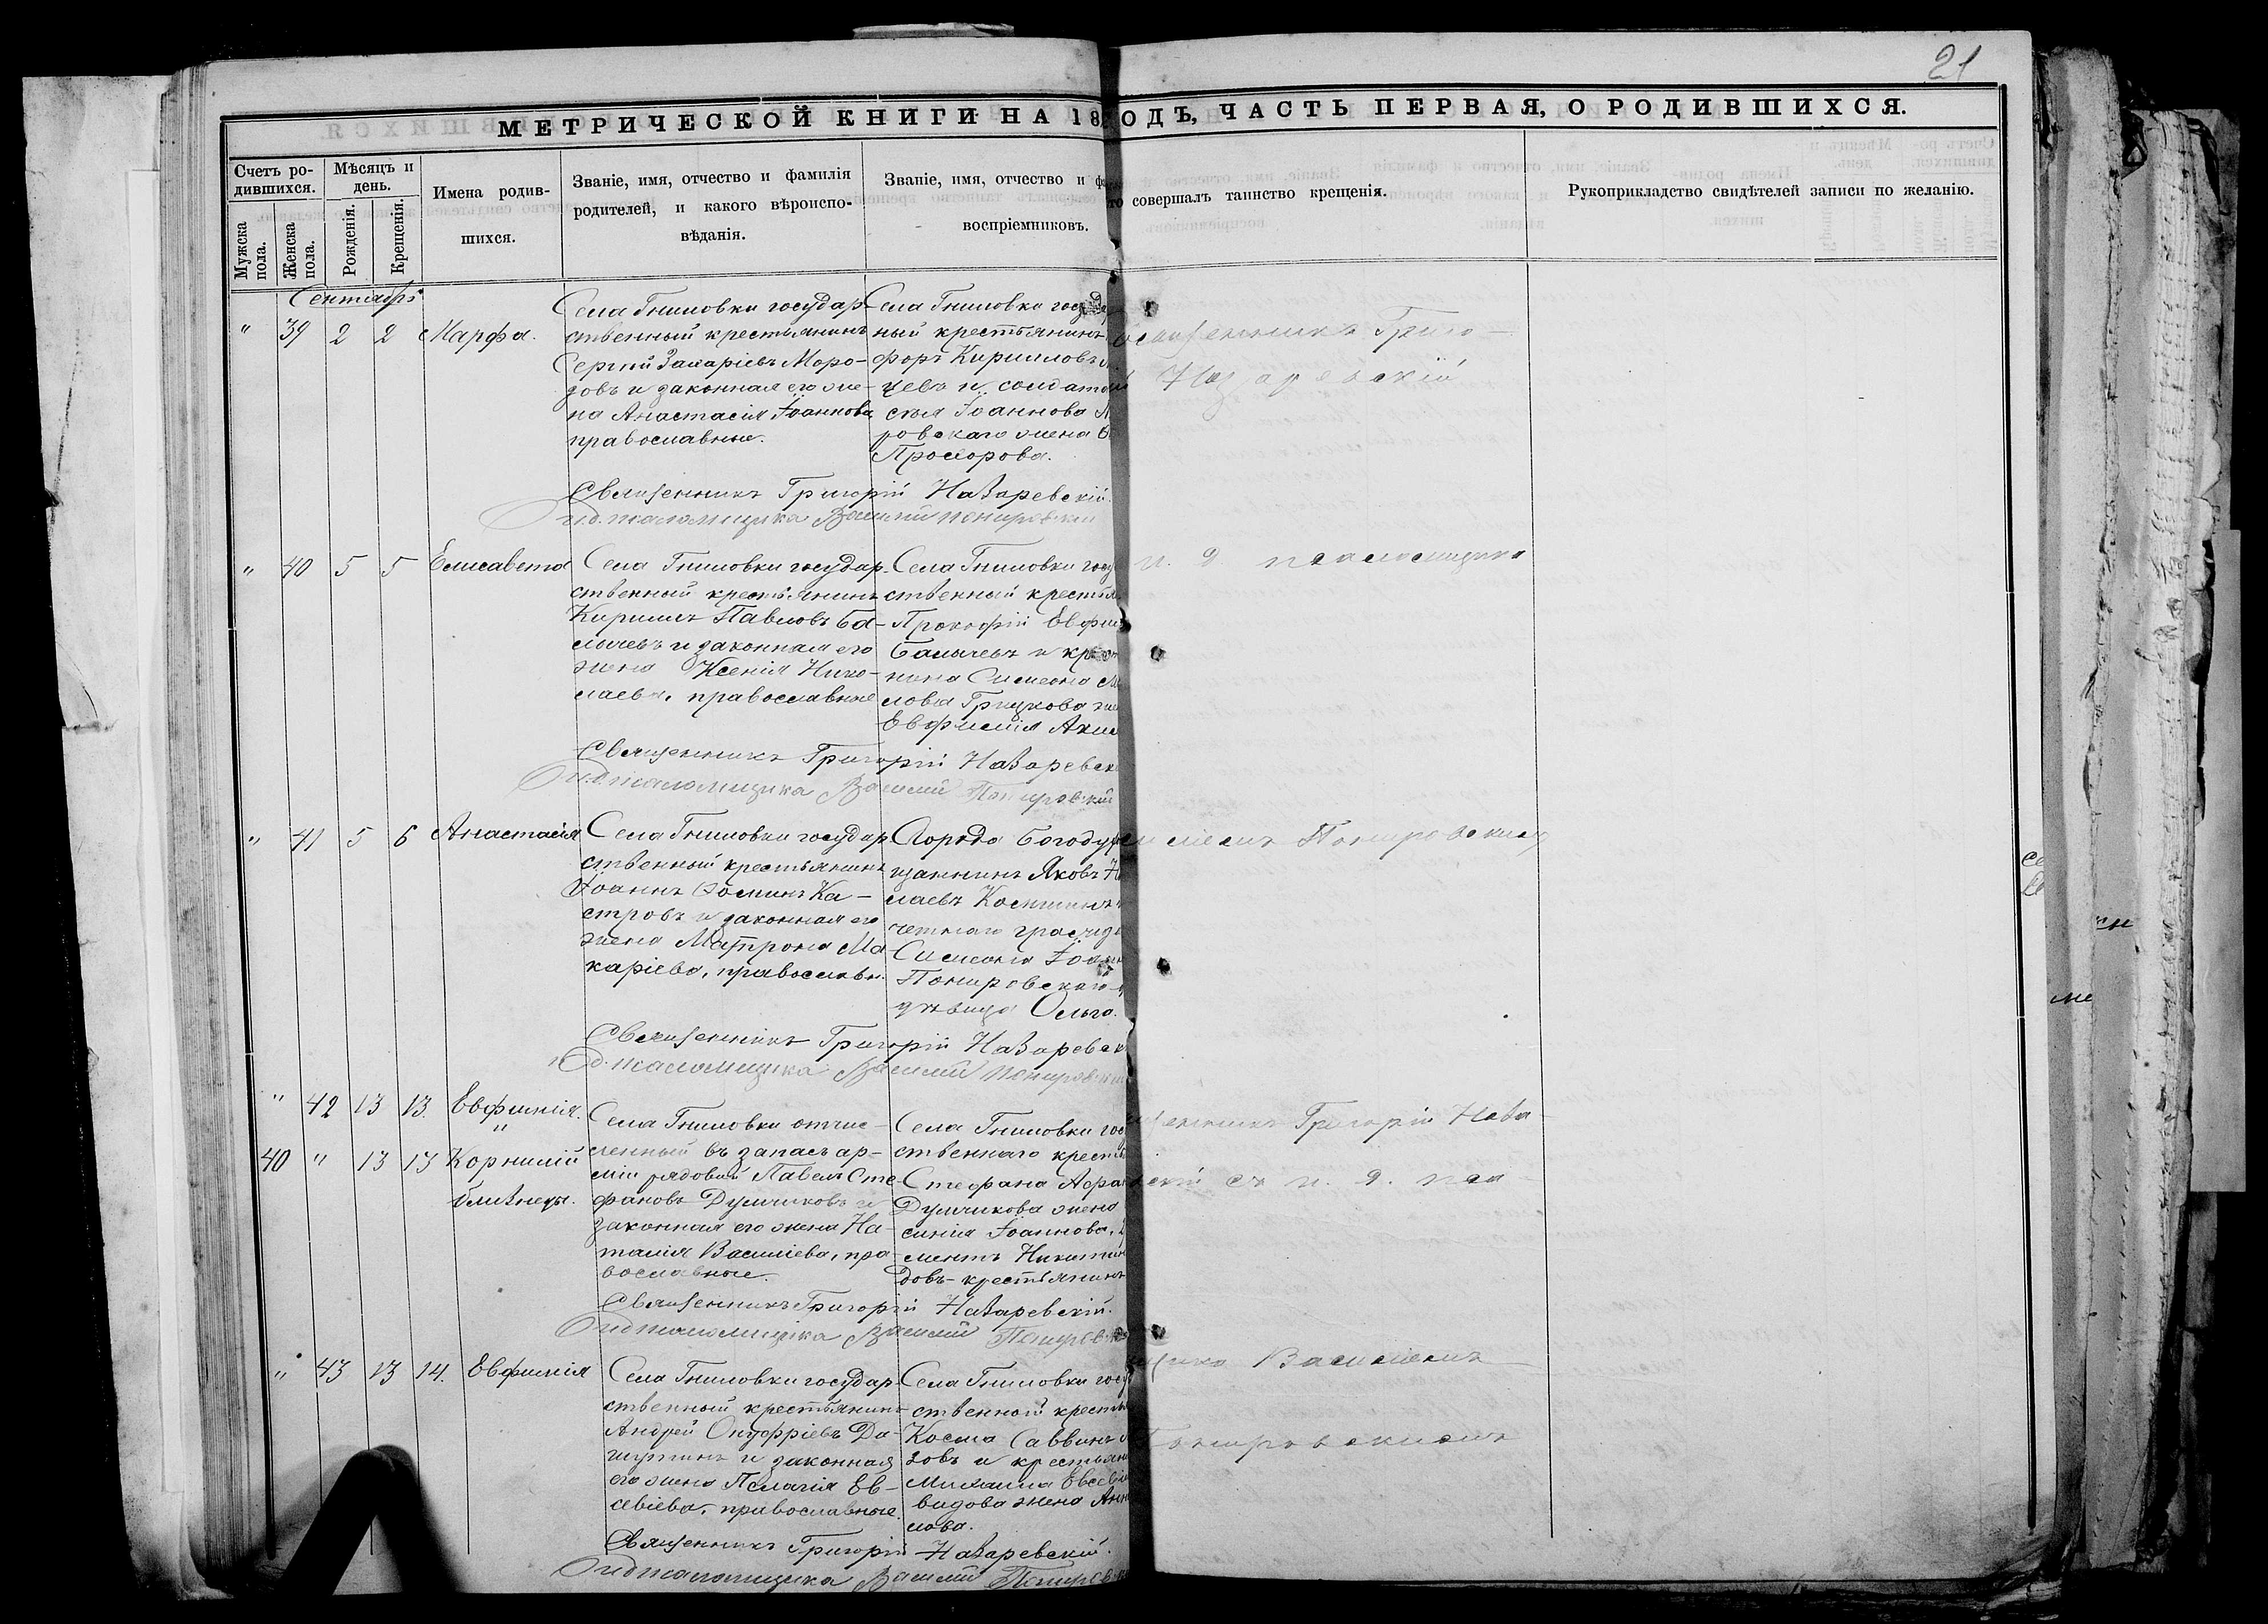 21
МЕТРИЧЕСКОЙ КНИГИ НА 18 ОДЪ, ЧАСТЬ ПЕРВАЯ, О РОДИВШИХСЯ.
Счетъ ро-
дившихся.
Мѣсяцъ и
день.
Мужска
пола.
Женска
пола.
Рожденія.
Крещенія.
Имена родив-
шихся.
Званіе, имя, отчество и фамилія
родителей, и какого вѣроиспо-
вѣданія.
Званіе, имя, отчество и
воспріемниковъ.
то совершалъ таинство крещенія.
Рукоприкладство свидѣтелей записи по желанію.
Сентябрь
" 39 2 2 Марфа.
Села Гниловки государ-
ственный крестьянинъ
Сергій Захаріевъ Моро-
зовъ и законная его же-
на Анастасія Іоаннова
православные.
Села Гниловки госуд
ный крестьянинъ
форъ Кирилловъ
цевъ и солдат
Іоаннова
ровскаго жена
Прохорова.
Священникъ Григорій Назаревскій.
и. д. псаломщика Василій Понировскій
священникъ Григо-
Назаревскій
" 40 5 5 Елисавета
Села Гниловки государ-
ственный крестьянинъ
Кириллъ Павловъ Ба-
лычевъ и законная его
жена Ксенія Нико-
лаева, православные
Села Гниловки госу
ственный крестья
Прокофій Евфим
Балычевъ и крест
нина Симеона
лова Грицкова же
Евфимія Аки
Священникъ Григорій Назаревск
и. д. псаломщика Василій Понировскій
и. д псаломщика
" 41 5 6 Анастасія
Села Гниловки государ
ственный крестьянинъ
Іоаннъ Фоминъ Ка-
стровъ и законная его
жена Матрона Ма-
каріева, православн.
Города Богоду
щанинъ Яковъ Н
лаевъ
четнаго гражд
Симеона Іоан
Понировскаго
дѣвица Ольга.
Священникъ Григорій Назаревск
и. д. псаломщика Василій Понировскі
Понировскимъ
" 42 13 13. Евфимія.
"
40 " 13 13 Корнилій
близнецы.
Села Гниловки отчис-
ленный въ запасъ ар-
міи рядовой Павелъ Сте-
фановъ Думчиковъ и
законная его жена На-
талія Василіева, пра-
вославные.
Села Гниловки гос
ственнаго кресть
Стефана Афа
Думчикова жена
Іоаннова,
ментъ Никитин
довъ - крестьянинъ
Священникъ Григорій Назаревскій.
и. д. псаломщика Василій Понировск
щенникъ Григорій Наза-
скій съ и. д. пса-
" 43 13 14. Евфимія
Села Гниловки государ
ственный крестьянинъ
Андрей Онуфріевъ Да-
шутинъ и законная
его жена Пелагія Ев-
севіева, православные.
Села Гниловки госу
ственной кресть
Косма Саввинъ
зовъ и крестьян
Михаила Евсеві
видова жена Анн
лова.
Священникъ Григорій Назаревскій.
и. д. псаломщика Василій Пониров
щика Василіемъ
Понировскимъ